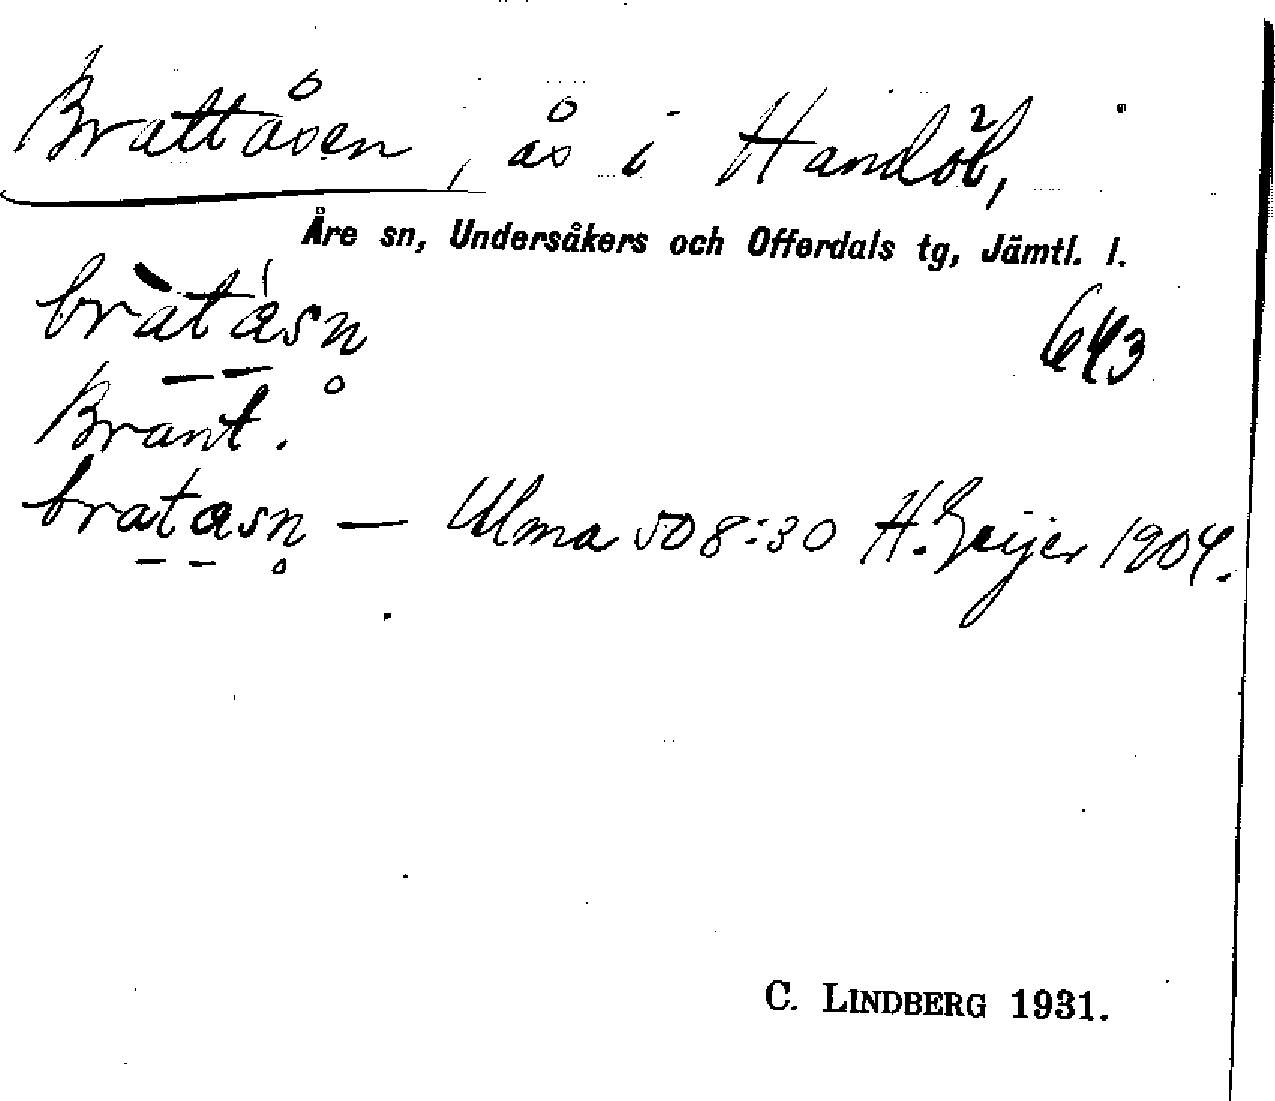 Brattåsen, ås i Handöl,
Åre sn, Undersåkers och Offerdals tg, Jämtl. l.
bràtásn̥
643
Brant.
bratasn̥ — Ulma 508:30 H. Geijer 1904.
C. LINDBERG 1931.